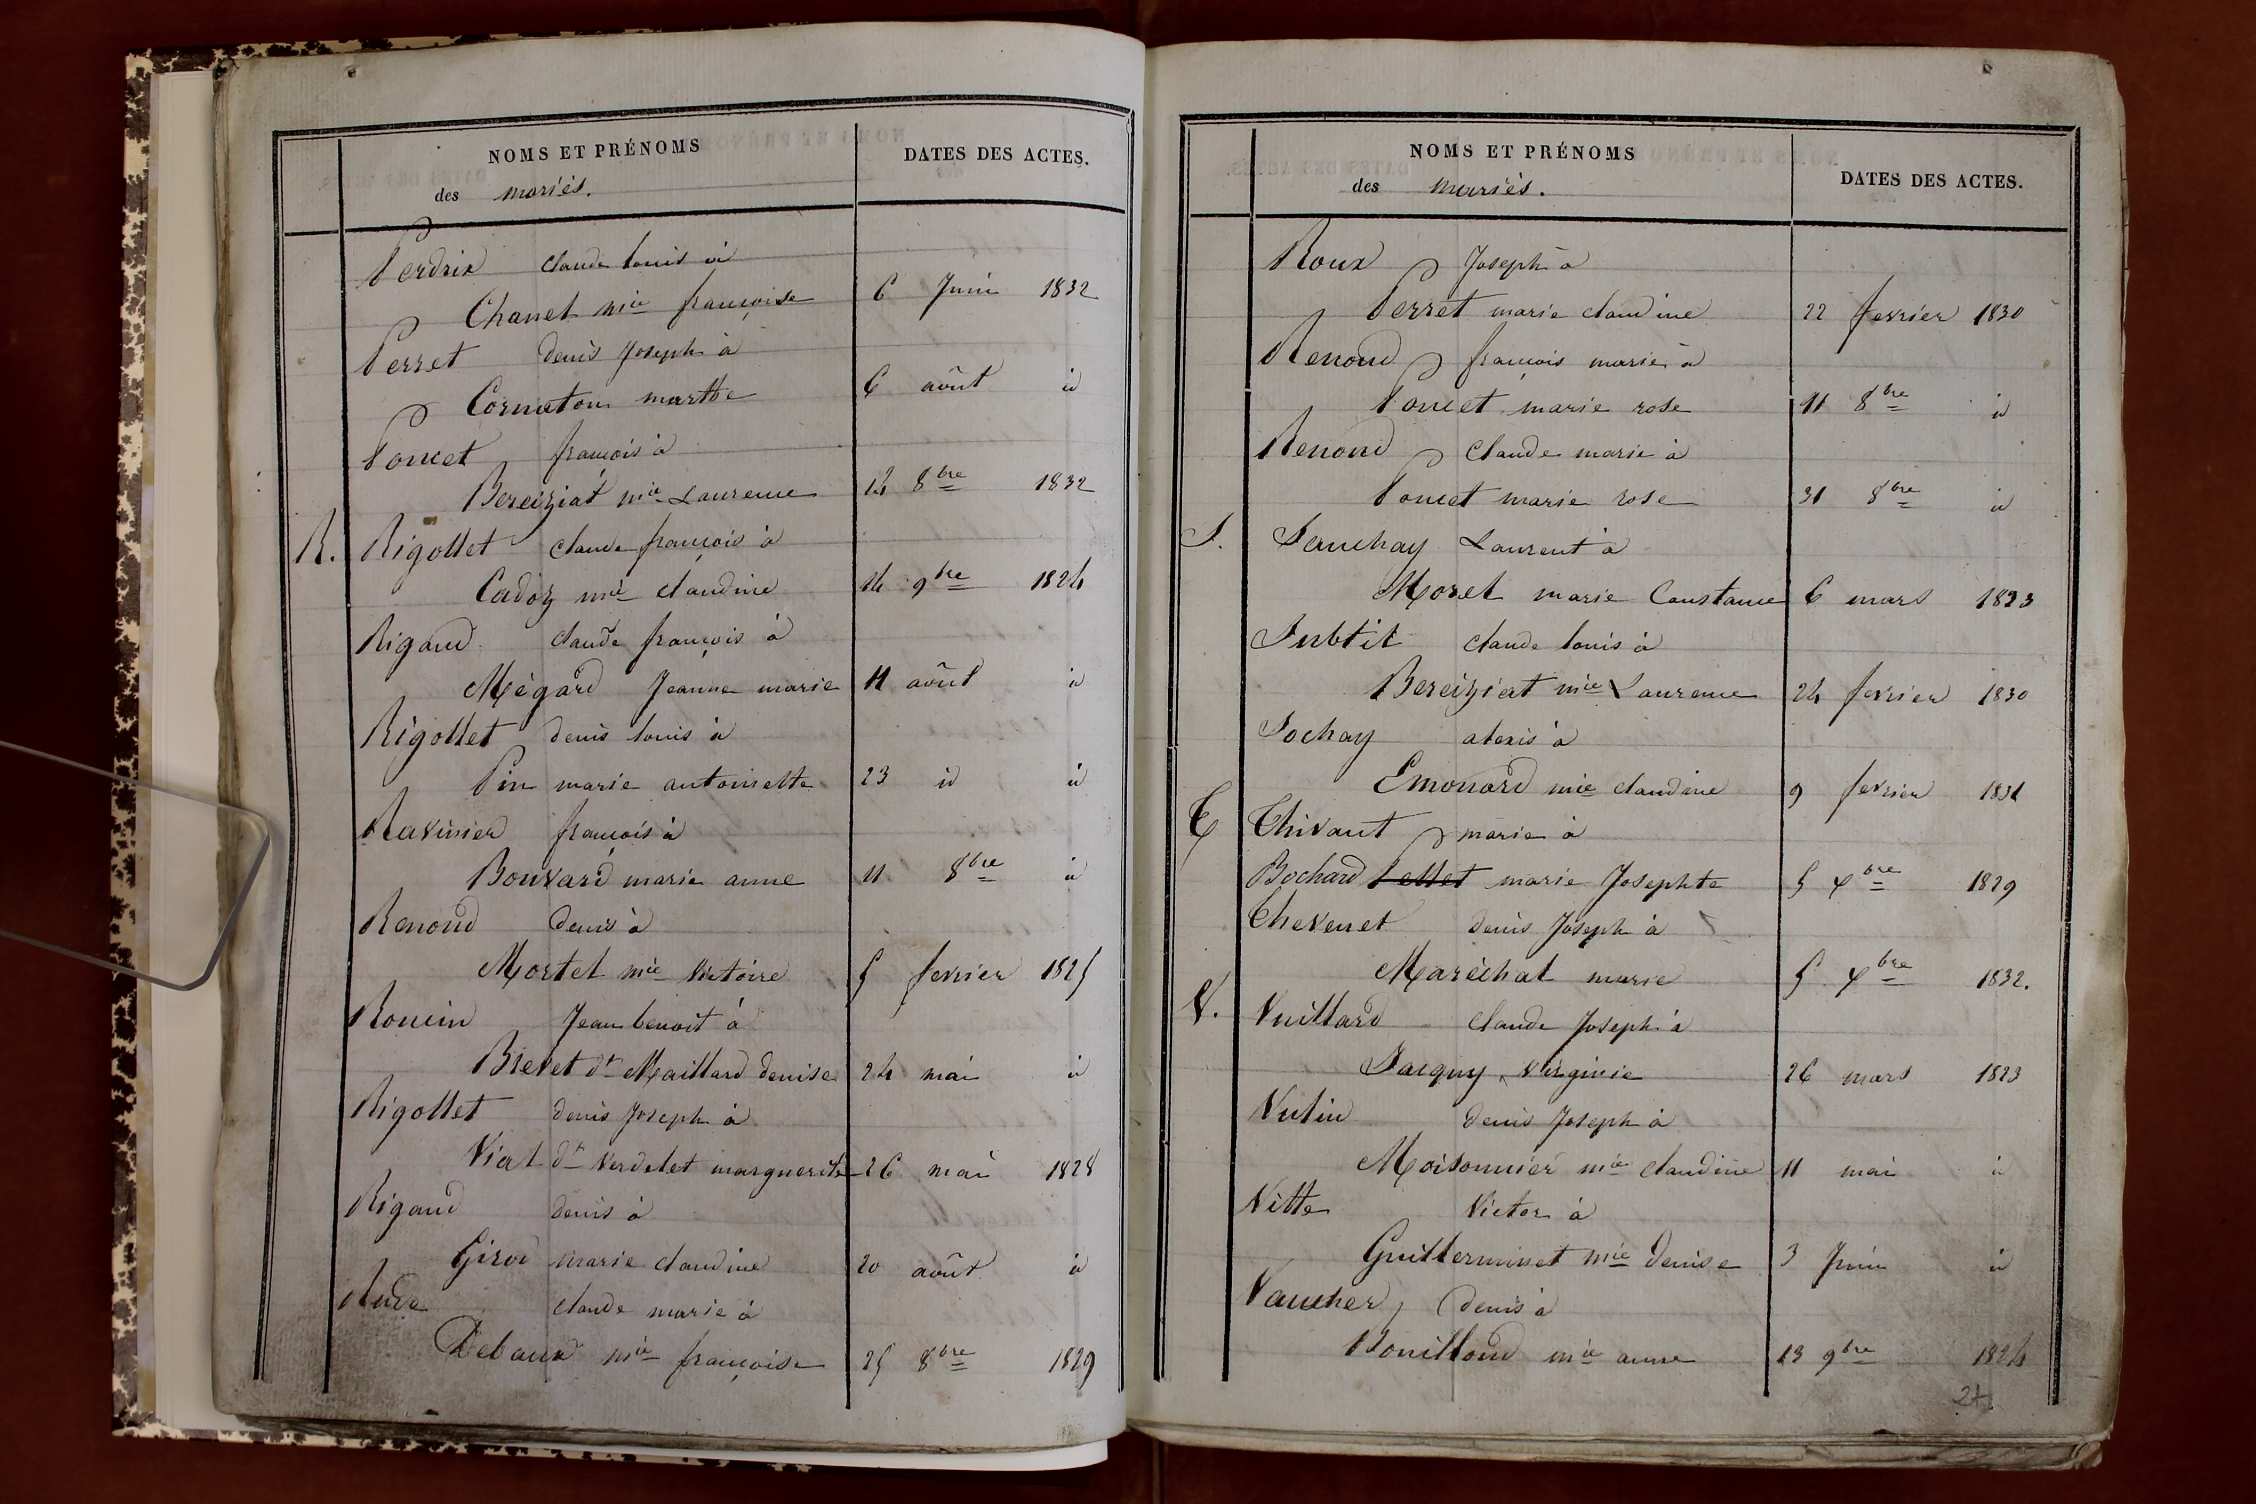 NOMS ET PRÉNOMS
des mariés.
DATES DES ACTES.
Perdrix claude louis à
Chanel mie françoise 6 Juin 1832
Perret denis Joseph à
Cornaton marthe 6 août id
Poncet françois à
Bereiziat mie Laurence 14 8bre 1832
R. Rigollet claude françois à
Cadoz mie claudine 14 9bre 1824
Rigaud claude françois à
Mégard Jeanne marie 11 août id
Rigollet denis louis à
Pin marie antoinette 23 id id
Ravinier françois à
Bouvard marie anne 11 8bre id
Renoud denis à
Mortel mie Victoire 5 fevrier 1825
Roncin Jean benoit à
Brevet dt Maillard denise 24 mai id
Rigollet denis Joseph à
Viat dt Verdelet marguerite 26 mai 1828
Rigaud denis à
Girod marie claudine 20 août id
Rude claude marie à
Debaux mie françoise 25 8bre 1829
NOMS ET PRÉNOMS
des mariés.
DATES DES ACTES.
Roux Joseph à
Perret marie claudine 22 fevrier 1830
Renoud françois marie à
Poncet marie rose 11 8bre id
Renoud Claude marie à
Poncet marie rose 31 8bre id
S. Servehay Laurent à
Morel marie Constance 6 mars 1823
Subtil claude louis à
Bereiziat mie Laurence 24 fevrier 1830
Sochay alexis à
Emonard mie claudine 9 fevrier 1831
T Thivant marie à
Bochard Pellet marie Josephte 5 xbre 1829
Thevenet denis Joseph à
Maréchal marie 5 xbre 1832.
V. Vuillard claude Joseph à
Jacquy Virginie 26 mars 1823
Vutin denis Joseph à
Moisonnier mie claudine 11 mai id
Vitte Victor à
Guillerminet mie denise 3 Juin id
Vaucher denis à
Bouilloud mie anne 13 9bre 1824
24